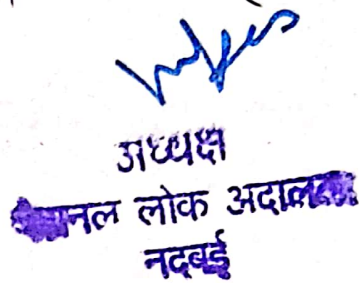 अध्यक्ष
नल लोक अदालत
नदबई